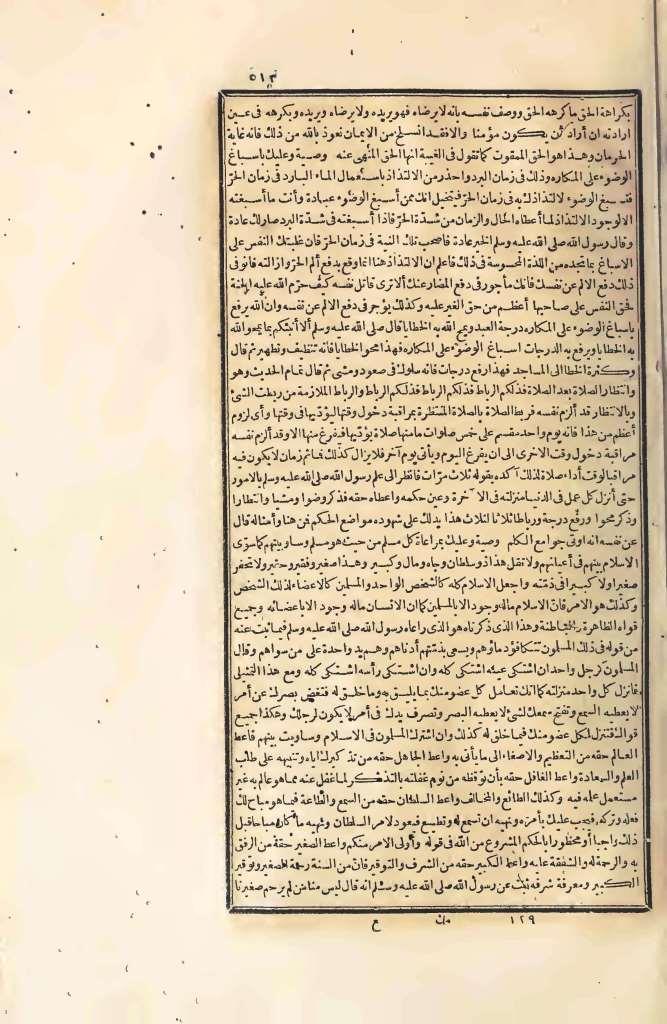 ٥١٣
بكراهة الحق ما كرهه الحق ووصف نفسه بانه لا يرضاه فهو يريده ولا يرضاه ويريده ويكرهه فى عين
ارادته ان أراد أن يكون مؤمنا والا فقد انسلخ من الايمان نعوذ بالله من ذلك فانه غاية
الحرمان وهذا هو الحق الممقوت كما تقول فى الغيبة انها الحق المنهى عنه وصية وعليك باسباغ
الوضوء على المكاره وذلك فى زمان البرد واحذر من الالتذاذ باستعمال الماء البارد فى زمان الحر
فتسبغ الوضوء لالتذاذك به فى زمان الحر فيتخيل انك ممن أسبغ الوضوء عبادة وأنت ما أسبغته
الا لوجود الالتذاذ لما أعطاه الحال والزمان من شدة الحر فاذا أسبغته فى شدة البرد صار لك عادة
وقال رسول الله صلى الله عليه وسلم الخير عادة فاصحب تلك النية فى زمان الحر فان غلبتك النفس على
الاسباغ بما تجده من اللذة المحسوسة فى ذلك فاعلم ان الالتذاذ هنا انما وقع بدفع ألم الحر وازالته فانو فى
ذلك دفع الالم عن نفسك فانك مأجور فى دفع المضار عنك ألا ترى قاتل نفسه كيف حرم الله عليه الجنة
فحق النفس على صاحبها أعظم من حق الغير عليه وكذلك يؤجر فى دفع الالم عن نفسه وان الله يرفع
باسباغ الوضوء على المكاره درجة العبد ويمحو الله به الخطايا قال صلى الله عليه وسلم ألا أنبئكم بما يمحو الله
به الخطايا ويرفع به الدرجات اسباغ الوضوء على المكاره فهذا محو الخطايا فانه تنظيف وتطهير ثم قال
وكثرة الخطا الى المساجد فهذا رفع درجات فانه سلوك فى صعود ومشى ثم قال تمام الحديث وهو
وانتظار الصلاة بعد الصلاة فذلكم الرباط فذلكم الرباط فذلكم الرباط والرباط الملازمة من ربطت الشئ
وبالانتظار قد ألزم نفسه فربط الصلاة بالصلاة المنتظرة بمراقبة دخول وقتها ليؤديها فى وقتها وأى لزوم
أعظم من هذا فانه يوم واحد مقسم على خمس صلوات مامنها صلاة يؤديها فيفرغ منها الا وقد ألزم نفسه
مراقبة دخول وقت الاخرى الى ان يفرغ اليوم ويأتى يوم آخر فلا يزال كذلك فما ثم زمان لا يكون فيه
مراقبا لوقت أداء صلاة لذلك أكده بقوله ثلاث مرات فانظر الى علم رسول الله صلى الله عليه وسلم بالامور
حتى أنزل كل عمل فى الدنيا منزلته فى الآخرة وعين حكمه وأعطاه حقه فذكر وضوأ ومشيا وانتظارا
وذكر محوا ورفع درجة ورباطا ثلاثا لثلاث هذا يدلك على شهوده مواضع الحكم فمن هنا وأمثاله قال
عن نفسه انه أوتى جوامع الكلم وصية وعليك بمراعاة كل مسلم من حيث هو مسلم وساو بينهم كما سوى
الاسلام بينهم فى أعيانهم ولا تقل هذا ذو سلطان وجاه ومال وكبير وهذا صغير وفقير وحقير ولا تحقر
صغيرا ولا كبيرا فى ذمته واجعل الاسلام كله كالشخص الواحد والمسلمين كالاعضاء لذلك الشخص
وكذلك هو الامر فان الاسلام ماله وجود الا بالمسلمين كما ان الانسان ماله وجود الا باعضائه وجميع
قواه الظاهرة والباطنة وهذا الذى ذكرناه هو الذى راعاه رسول الله صلى الله عليه وسلم فيما ثبت عنه
من قوله فى ذلك المسلمون تتكافؤ دماؤهم ويسعى بذمتهم أدناهم وهم يد واحدة على من سواهم وقال
المسلمون كرجل واحد ان اشتكى عينه اشتكى كله وان اشتكى رأسه اشتكى كله ومع هذا التمثيل
فانزل كل واحد منزلته كما انك تعامل كل عضو منك بما يليق به وما خلق له فتغض بصرك عن أمر
لا يعطيه السمع وتفتح سمعك لشئ لا يعطيه البصر وتصرف يدك فى أمر لا يكون لرجلك وهكذا جميع
قواك فتنزل لكل عضو منك فيما خلق له كذلك وان اشترك المسلمون فى الاسلام وساويت بينهم فاعط
العالم حقه من التعظيم والاصغاء الى ما يأتى به واعط الجاهل حقه من تذكيرك اياه وتنبيهه على طلب
العلم والسعادة واعط الغافل حقه بأن توقظه من نوم غفلته بالتذكير لما غفل عنه مما هو عالم به غير
مستعمل علمه فيه وكذلك الطائع والمخالف واعط السلطان حقه من السمع والطاعة فيما هو مباح لك
فعله وتركه فيجب عليك بأمره ونهيه ان تسمع له وتطيع فيعود لامر السلطان ونهيه ما كان مباحا قبل
ذلك واجبا أو محظورا بالحكم المشروع من الله فى قوله وأولى الامر منكم واعط الصغير حقه من الرفق
به والرحمة له والشفقة عليه واعط الكبير حقه من الشرف والتوقير فان من السنة رحمة الصغير وتوقير
الكبير ومعرفة شرفه ثبت عن رسول الله صلى الله عليه وسلم انه قال ليس منا من لم يرحم صغيرنا
١٢٩ مك ع